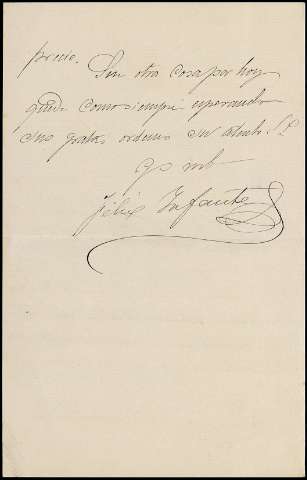 precio. Sin otra cosa por hoy
quedo como siempre esperando
sus gratas ordenes su atento S.
q s m b
Felix Infante